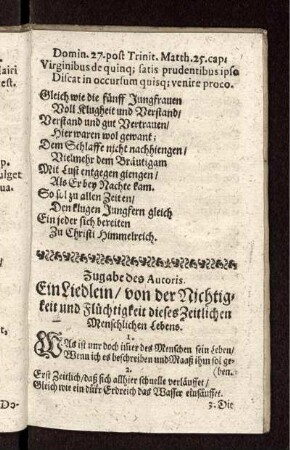 Domin. 27. post Trinit. Matth. 25. cap.
Virginibus de quinq; satis prudentibus ipso
Discat in occursum quisq; venire proco.
Gleich wie die fünff Jungfrauen
Voll Klugheit und Verstand/
Verstand und gut Vertrauen/
Hier waren wol gewant;
Dem Schlaffe nicht nachhiengen/
Vielmehr dem Bräutigam
Mit Lust entgegen giengen/
Als Er bey Nachte kam.
So sol zu allen Zeiten/
Den klugen Jungfern gleich
Ein jeder sich bereiten
Zu Christi Himmelreich.
Zugabe des Autoris.
Ein Liedlein/ von der Nichtig-
keit und Flüchtigkeit dieses Zeitlichen
Menschlichen Lebens.
1.
WAs ist unr doch üser des Menschen sein Leben/
Wenn ich es beschreiben und Maaß ihm sol ge-
(ben.
2.
Erst Zeitlich/ daß sich allhier schnelle verläuffet/
Gleich wie ein dürr Erdreich das Wasser einsäuffet.
3. Die
Mairi
est.
p.
ulget
ua.
Do-